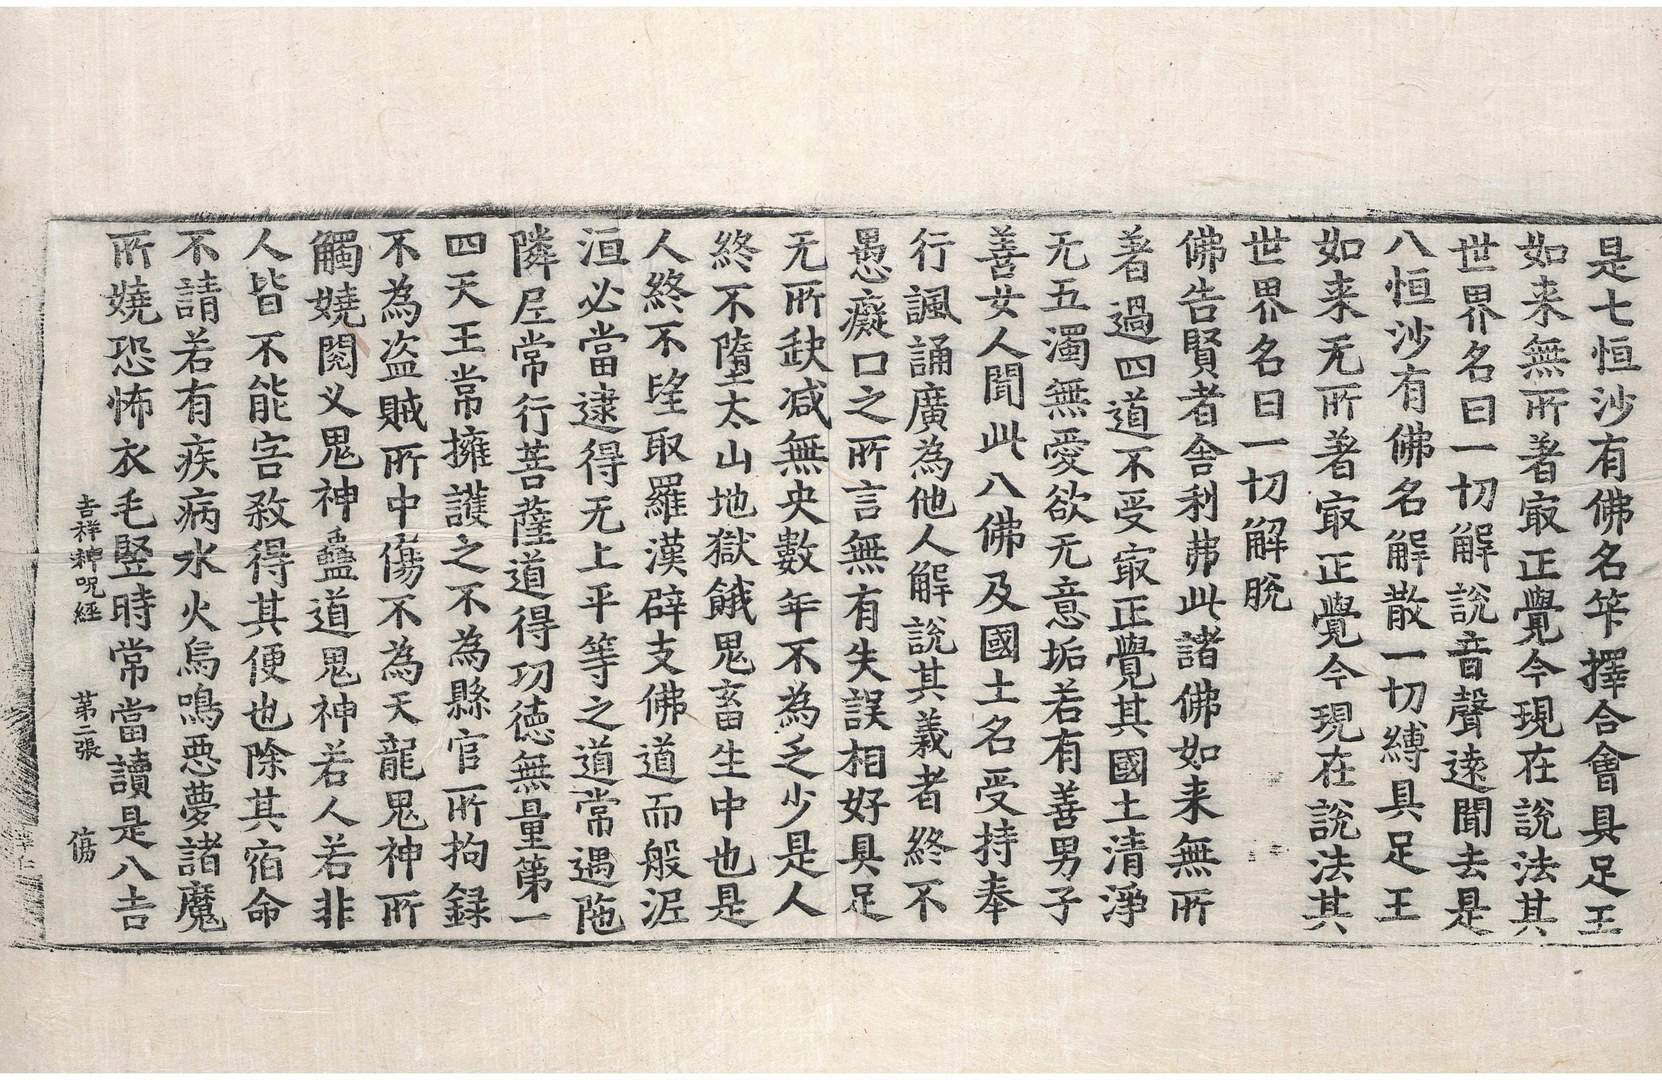 是七恒沙有佛名等擇合會具足王
如来無所著㝡正覺今現在說法其
世界名曰一切解說音聲遠聞去是
八恒沙有佛名解散一切縛具足王
如来无所著㝡正覺今現在說法其
世界名曰一切解脫
佛告賢者舍利弗此諸佛如来無所
著過四道不受㝡正覺其國土清淨
无五濁無愛欲无意垢若有善男子
善女人聞此八佛及國土名受持奉
行諷誦廣為他人解說其義者終不
愚癡口之所言無有失誤相好具足
无所缺减無央數年不為乏少是人
終不墮太山地獄餓鬼畜生中也是
人終不望取羅漢辟支佛道而般泥
洹必當逮得无上平等之道常遇陁
隣尼常行菩薩道得功德無量第一
四天王常擁護之不為縣官所拘録
不為盗賊所中傷不為天龍鬼神所
觸嬈閱叉鬼神蠱道鬼神若人若非
人皆不能害殺得其便也除其宿命
不請若有疾病水火鳥鳴惡夢諸魔
所嬈恐怖衣毛竪時常當讀是八吉
吉祥神呪經 第二張 傷